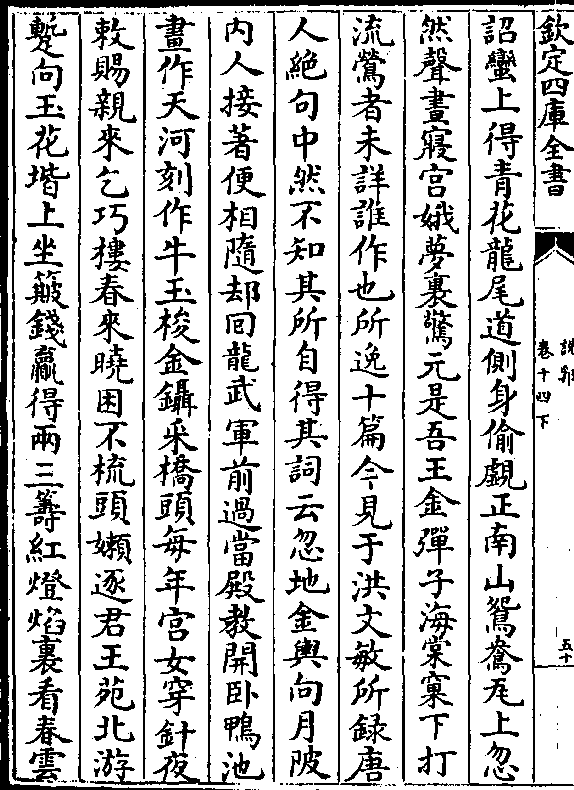 欽定四庫全書
說郛
卷十四下
五十
詔蠻上得青花龍尾道側身偷覷正南山鴛鴦瓦上忽
然聲晝寢宮娥夢裏驚元是吾王金彈子海棠窠下打
流鶯者未詳誰作也所逸十篇今見于洪文敏所錄唐
人絶句中然不知其所自得其詞云忽地金輿向月陂
内人接著便相隨却回龍武軍前過當殿教開卧鴨池
畫作天河刻作牛玉梭金鑷采橋頭每年宮女穿針夜
敕賜親來乞巧摟春來曉困不梳頭嬾逐君王苑北游
蹔向玉花堦上坐簸錢贏得兩三籌紅燈焰裏看春雲